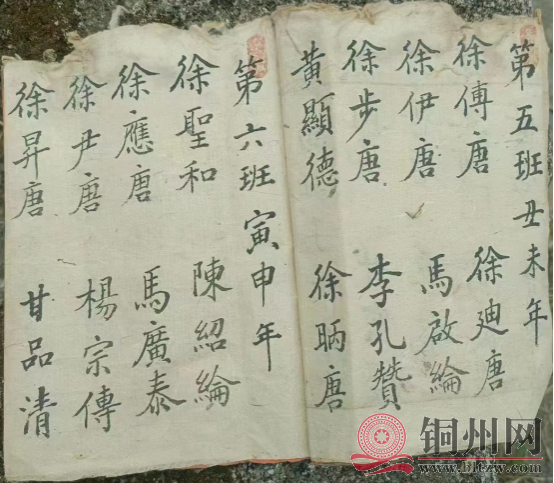 第五班丑未年
徐傅唐 徐廸唐
徐伊唐 馬啟綸
徐步唐 李孔贊
黃顯德 徐昞唐
第六班寅申年
徐聖和 陳紹綸
徐應唐 馬廣泰
徐尹唐 楊宗傳
徐昇唐 甘品清
铜州网
www.bltzw.com